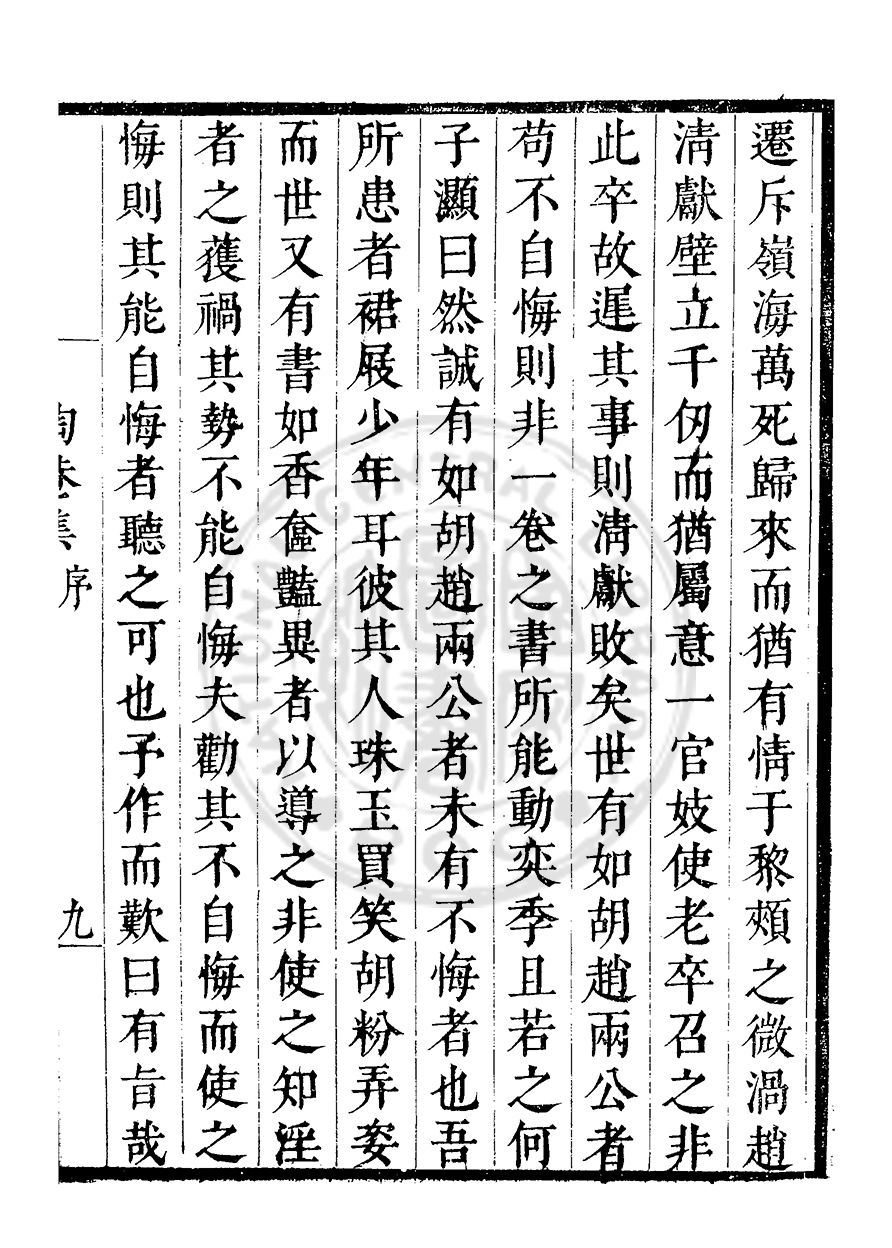 遷斥嶺海萬死歸來而猶有情于黎頰之微渦趙
淸獻壁立千仞而猶屬意一官妓使老卒召之非
此卒故遲其事則淸獻敗矣世有如胡趙兩公者
苟不自悔則非一卷之書所能動奕季且若之何
子灝曰然誠有如胡趙兩公者未有不悔者也吾
所患者裙屐少年耳彼其人珠玉買笑胡粉弄姿
而世又有書如香奩豔異者以導之非使之知淫
者之獲禍其勢不能自悔夫勸其不自悔而使之
悔則其能自悔者聽之可也予作而歎曰有旨哉
陶菴集 序 九